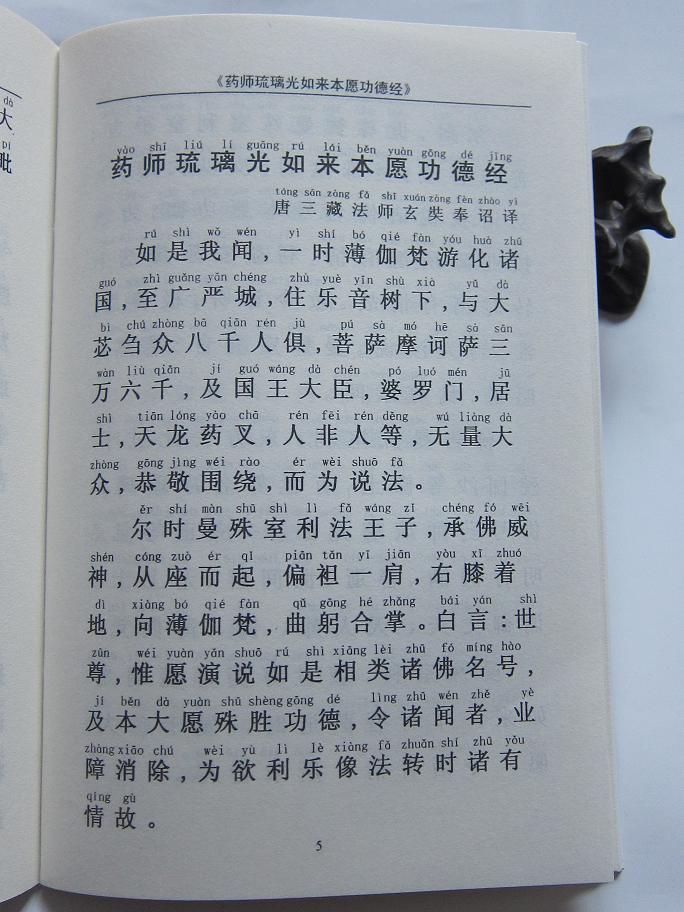 dà
大
pí
毗
《药师琉璃光如来本愿功德经》
yào shī liú lí guāng rú lái běn yuàn gōng dé jīng
药师琉璃光如来本愿功德经
táng sān zàng fǎ shī xuán zàng fèn zhào yì
唐三藏法师玄奘奉诏译
rú shì wǒ wén yì shí bó qié fàn yóu huà zhū
如是我闻，一时薄伽梵游化诸
guó zhì guǎng yán chéng zhù yuè yīn shù xià yǔ dà
国，至广严城，住乐音树下，与大
bì chú zhòng bā qiān rén jù pú sà mó hē sà sān
苾刍众八千人俱，菩萨摩诃萨三
wàn liù qiān jí guó wáng dà chén pó luó mén jū
万六千，及国王大臣，婆罗门，居
shì tiān lóng yào chā rén fēi rén děng wú liàng dà
士，天龙药叉，人非人等，无量大
zhòng gōng jìng wéi rào ér wèi shuō fǎ
众，恭敬围绕，而为说法。
ěr shí màn shū shì lì fǎ wáng zǐ chéng fó wēi
尔时曼殊室利法王子，承佛威
shén cóng zuò ér qǐ piān tǎn yī jiān yòu xī zhuó
神，从座而起，偏袒一肩，右膝着
dì xiàng bó qié fàn qū gōng hé zhǎng bái yán shì
地，向薄伽梵，曲躬合掌。白言：世
zūn wéi yuàn yǎn shuō rú shì xiāng lèi zhū fó míng hào
尊，惟愿演说如是相类诸佛名号，
jí běn dà yuàn shū shèng gōng dé lìng zhū wén zhě yè
及本大愿殊胜功德，令诸闻者，业
zhàng xiāo chú wèi yù lì lè xiàng fǎ zhuǎn shí zhū yǒu
障消除，为欲利乐像法转时诸有
qíng gù
情故。
5